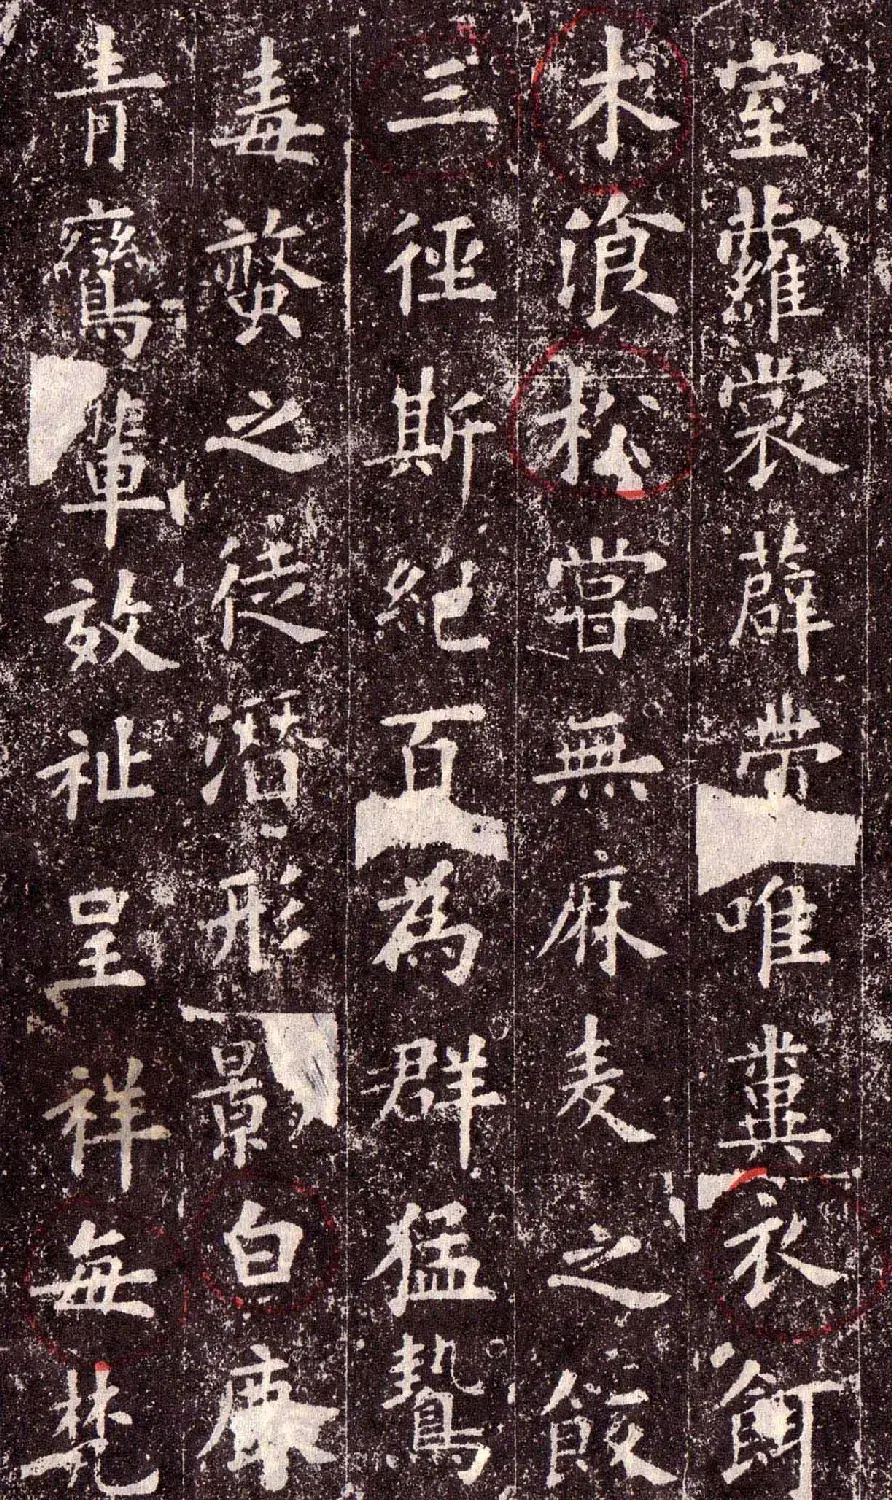 室蘿裳薜帶唯糞衣餌
木湌松嘗無麻麦之飯
三徑斯絶百為群猛鷙
毒螫之徒潛形景白鹿
青鸞輩效祉呈祥每梵